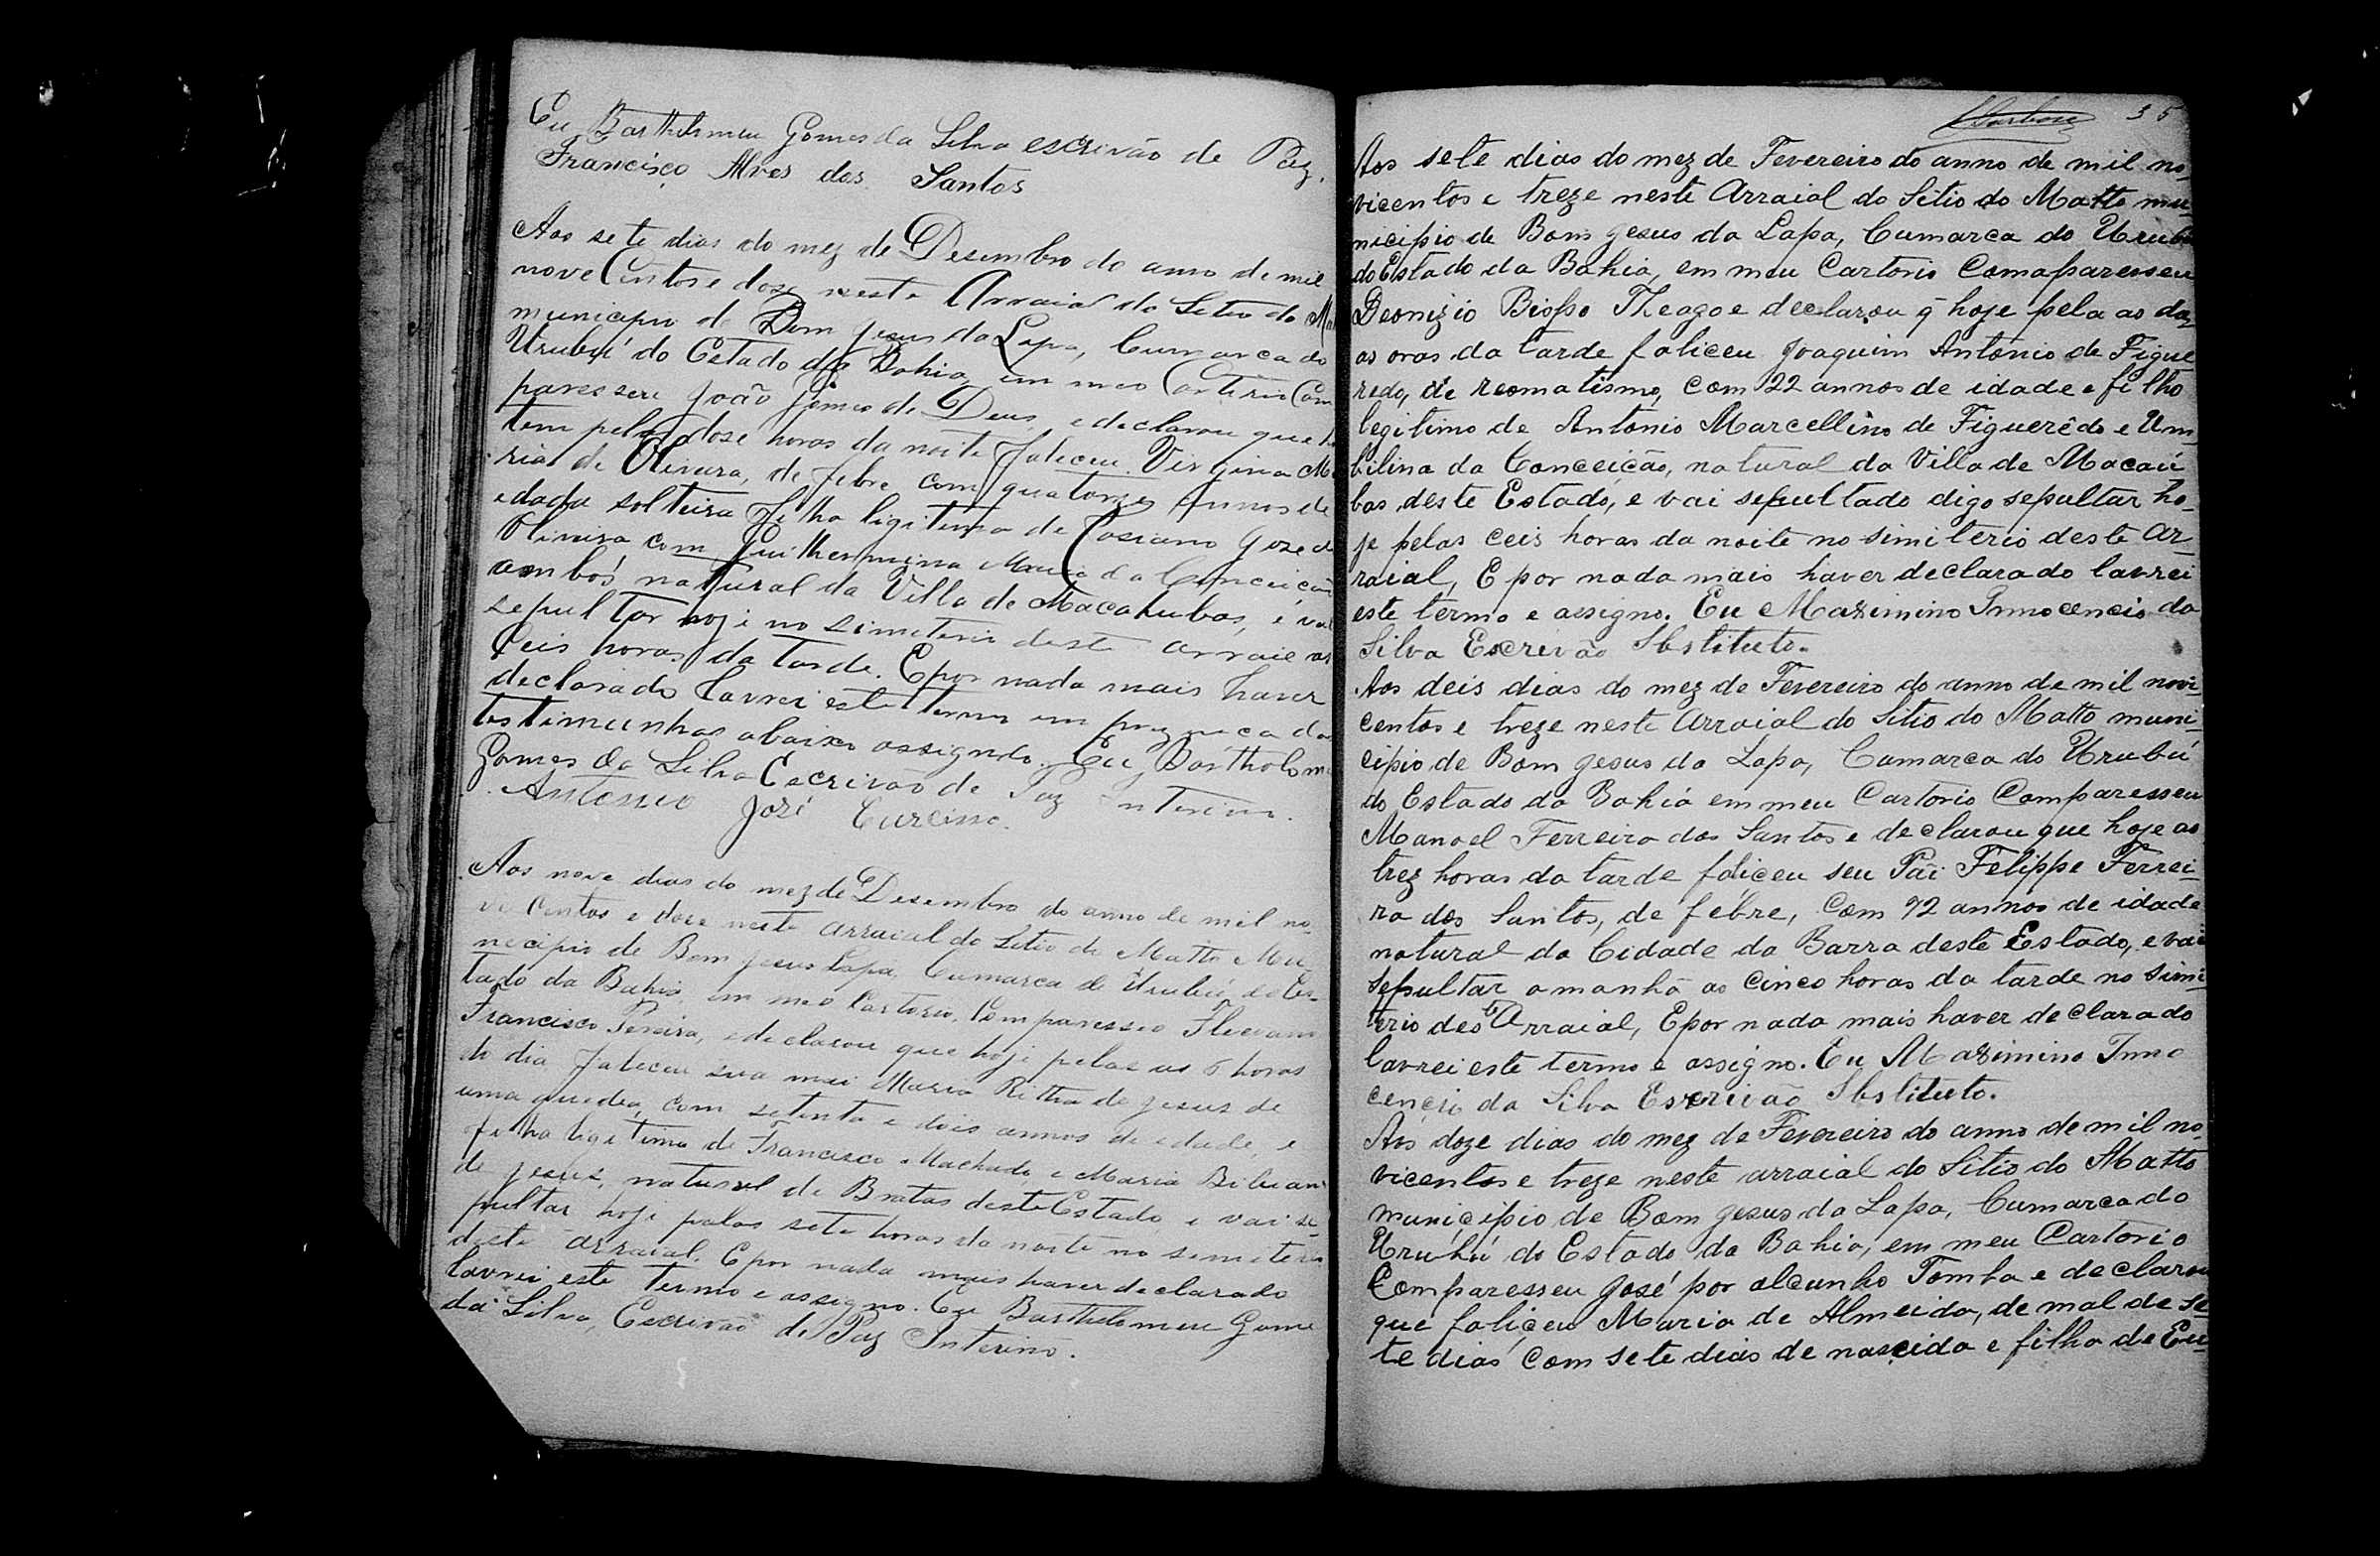 Eu Bartholomeu Gomes da Silva escrivão de Paz.
Francisco Alves dos Santos
Aos sete dias do mez de Desembro do anno de mil
nove Centos e dose neste Arraial do Sitio do Ma
municipio de Bom Jesus da Lapa, Cumarca do
Urubú do Estado da Bahia, em meu Cartorio Com
paresseu João Gomes de Deus, e declarou que
tem pelas dose horas da noite faleceu Virginia Ma
ria de Olivera, de febre com quatorze annos de
edade solteira filha ligitima de Casiano Joze d
Oliveira com Guilhermina Maria da Conceição
ambos natural da Villa de Macahubas, e vai
sepultar hoje no simeterio deste arraial as
Ceis horas da tarde. E por nada mais haver
declarado lavrei este termo em prezença da
testimunhas abaixo assignado. Eu Bartholome
Gomes da Silva Escrivão de Paz Interino.
Antonio José Curcino.
Aos nove dias do mez de Desembro do anno de mil no
ve Centos e dose neste arraial do Sitio do Matto Mu
necipio de Bom Jesus Lapa, Cumarca de Urubú do Es-
tado da Bahia, em meo Cartorio, Comparesseo
Francisco Pereira, e declarou que hoje pelas as 6 horas
do dia faleceu sua mai Maria Ritha de Jesus de
uma queda, com setenta e dois annos de edade, e
filha ligitima de Francisco Machado, e Maria
de Jesus, natural de Brotas deste Estado e vai se-
pultar hoje palas sete horas da noite no simeterio
deste arraial. E por nada mais haver declarado
lavrei este termo e assigno. Eu Bartholomeu Gome
da Silva, Escrivão de Paz Interino.
35
Aos sete dias do mez de Fevereiro do anno de mil no-
vicentos e treze neste Arraial do Sitio do Matto mu-
nicipio de Bom Jesus da Lapa, Cumarca do Urubú
do Estado da Bahia, em meu Cartorio Comaparesseu
Deonizio Bispo Theago e declarou q̃ hoje pela as do
as oras da tarde faliceu Joaquim Antonio de Figue
redo, de reomatismo, com 22 annos de idade e filho
legitimo de Antonio Marcellino de Figuerêdo e Um-
bilina da Conceição, natural da Villa de Macaú
bas deste Estado, e vai sepultado digo sepultar ho-
je pelas ceis horas da noite no simiterio deste Ar-
raial, E por nada mais haver declarado lavrei
este termo e assigno. Eu Maximino Innocencio da
Silva Escrivão Sbstituto.
Aos deis dias do mez de Fevereiro do anno de mil novi-
centos e treze neste Arraial do Sitio do Matto muni-
cipio de Bom Jesus da Lapa, Camarca do Urubú
do Estado da Bahia em meu Cartorio Comparesseu
Manoel Ferreira dos Santos e declarou que hoje as
trez horas da tarde faliceu seu Pai Felippe Ferrei-
ra dos Santos, de febre, Com 92 annos de idade
natural da Cidade da Barra deste Estado, e vai
sepultar amanhã as cinco horas da tarde no simi-
terio deste Arraial, E por nada mais haver declarado
lavrei este termo e assigno. Eu Maximino Inno
cencio da Silva Escrivão Sbstituto.
Aos doze dias do mez de Fevereiro do anno de mil no-
vicentos e treze neste arraial do Sitio do Matto
municipio de Bom Jesus da Lapa, Cumarca do
Urubú do Estado da Bahia, em meu Cartorio
Comparesseu José por alcunho Tomba e declarou
que faliceu Maria de Almeida, de mal de se-
te dias com sete dias de nascida e filha de Eu-